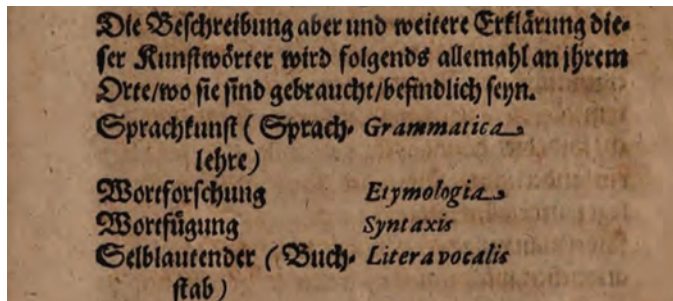 Die Beschreibung aber und weitere Erklärung die-
ser Kunstwörter wird folgends allemahl an jhrem
Orte/wo sie sind gebraucht/befindlich seyn.
Sprachkunst ( Sprach- Grammatica
lehre)
Wortforschung Etymologia
Wortfügung Syntaxis
Selblautender ( Buch- Litera vocalis
stab )